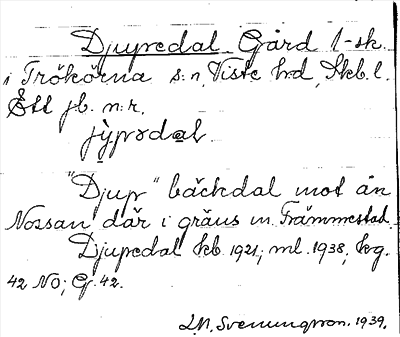 Djupedal Gård 1-sk.
i Trökörna s:n, Viste hd, Skb. l.
Ett jb. n:r.
jỳpədal.
"Djup" bäckdal mot ån
Nossan där i gräns m. Främmestad.
Djupedal kb. 1921; ml. 1938, kg.
42 NO; G. 42.
J.M. Svenungsson. 1939.